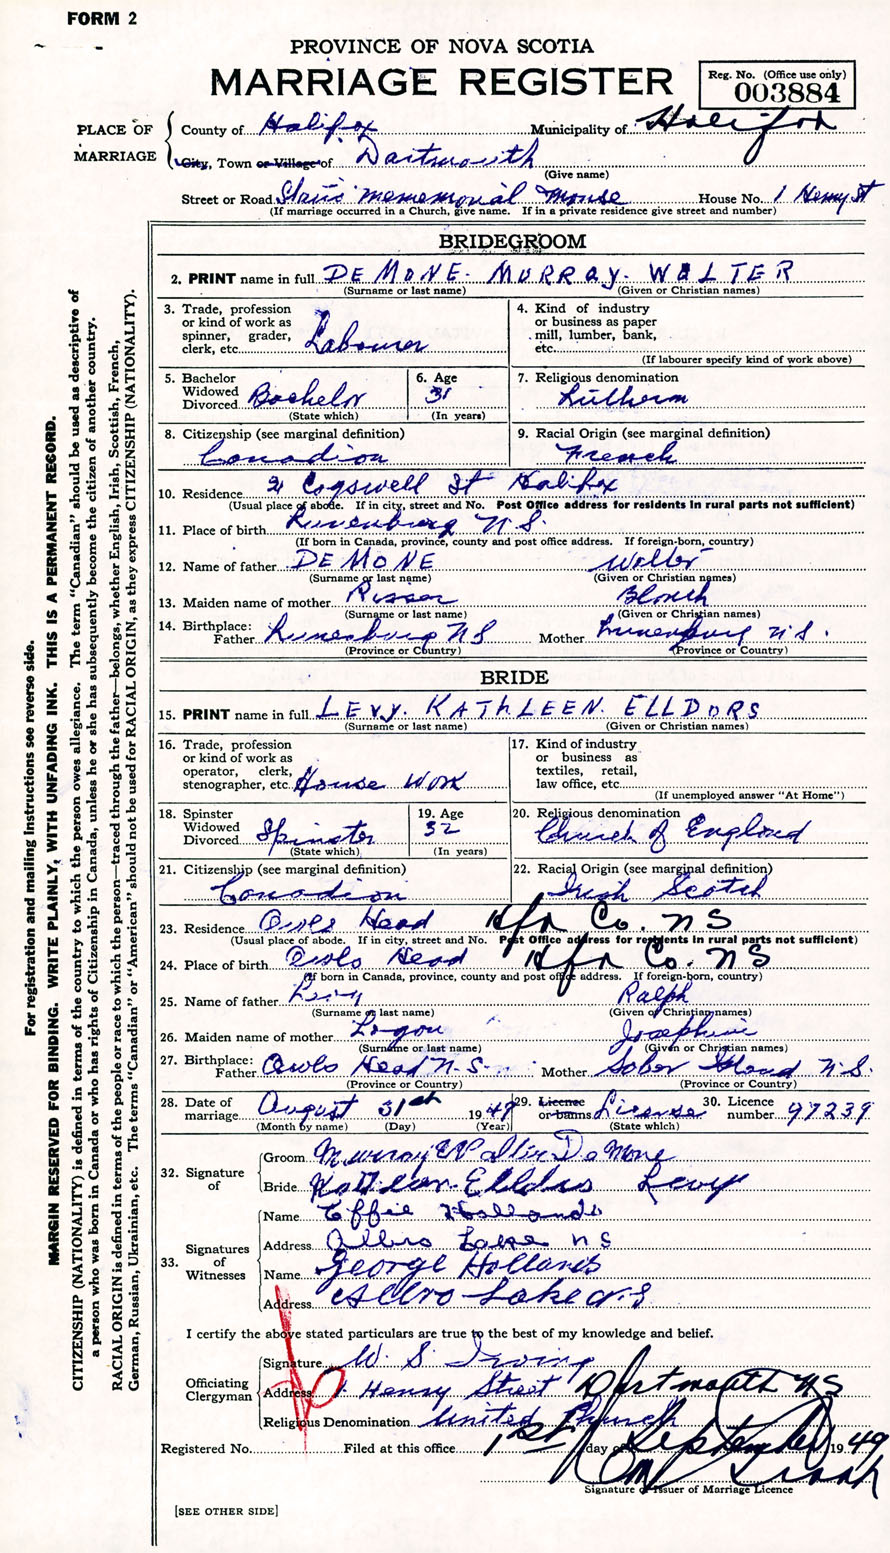 FORM 2
PROVINCE OF NOVA SCOTIA
MARRIAGE REGISTER
Reg. No. (Office use only)
003884
PLACE OF MARRIAGE
County of Halifax Municipality of Halifax
City, Town or Village of Dartmouth
(Give name)
Street or Road Stairs Mememorial House House No. 1 Henry St
(If marriage occurred in a Church, give name. If in a private residence give street and number)
BRIDEGROOM
2. PRINT name in full DEMONE. MURRAY. WALTER
(Surname or last name) (Given or Christian names)
3. Trade, profession or kind of work as spinner, grader, clerk, etc. Labourer
4. Kind of industry or business as paper mill, lumber, bank, etc.
(If labourer specify kind of work above)
5. Bachelor Widowed Divorced Bachelor
(State which)
6. Age 31
(In years)
7. Religious denomination Lutheran
8. Citizenship (see marginal definition) Canadian
9. Racial Origin (see marginal definition) French
10. Residence 21 Cogswell St Halifax
(Usual place of abode. If in city, street and No. Post Office address for residents in rural parts not sufficient)
11. Place of birth Lunenburg N.S.
(If born in Canada, province, county and post office address. If foreign-born, country)
12. Name of father DEMONE Walter
(Surname or last name) (Given or Christian names)
13. Maiden name of mother Risser
(Surname or last name) (Given or Christian names)
14. Birthplace: Father Lunenburg NS Mother Lunenburg N.S.
(Province or Country) (Province or Country)
BRIDE
15. PRINT name in full LEVY. KATHLEEN. ELLDORS
(Surname or last name) (Given or Christian names)
16. Trade, profession or kind of work as operator, clerk, stenographer, etc. House Work
17. Kind of industry or business as textiles, retail, law office, etc.
(If unemployed answer "At Home")
18. Spinster Widowed Divorced Spinster
(State which)
19. Age 32
(In years)
20. Religious denomination Church of England
21. Citizenship (see marginal definition) Canadian
22. Racial Origin (see marginal definition) Irish Scotch
23. Residence Owls Head Hfx Co. NS
(Usual place of abode. If in city, street and No. Post Office address for residents in rural parts not sufficient)
24. Place of birth Owls Head Hfx Co. NS
(If born in Canada, province, county and post office address. If foreign-born, country)
25. Name of father Levy Ralph
(Surname or last name) (Given or Christian names)
26. Maiden name of mother Logan Josephine
(Surname or last name) (Given or Christian names)
27. Birthplace: Father Owls Head N.S. Mother Sober Island N.S.
(Province or Country) (Province or Country)
28. Date of marriage August 31st 1949
(Month by name) (Day) (Year)
29. Licence or banns License
(State which)
30. Licence number 97239
32. Signature of
Groom Murray Walter DeMone
Bride Kathleen Elldors Levy
33. Signatures of Witnesses
Name Effie Hollands
Address Albro Lake NS
Name George Hollands
Address Albro Lake N.S
I certify the above stated particulars are true to the best of my knowledge and belief.
Officiating Clergyman
Signature W. S. Irving
Address 1 Henry Street Dartmouth NS
Religious Denomination United Church
Registered No. Filed at this office 1st day of September 1949
Signature of Issuer of Marriage Licence
[SEE OTHER SIDE]
For registration and mailing instructions see reverse side.
MARGIN RESERVED FOR BINDING. WRITE PLAINLY, WITH UNFADING INK. THIS IS A PERMANENT RECORD.
CITIZENSHIP (NATIONALITY) is defined in terms of the country to which the person owes allegiance. The term "Canadian" should be used as descriptive of
a person who was born in Canada or who has rights of Citizenship in Canada, unless he or she has subsequently become the citizen of another country.
RACIAL ORIGIN is defined in terms of the people or race to which the person—traced through the father—belongs, whether English, Irish, Scottish, French,
German, Russian, Ukrainian, etc. The terms "Canadian" or "American" should not be used for RACIAL ORIGIN, as they express CITIZENSHIP (NATIONALITY).